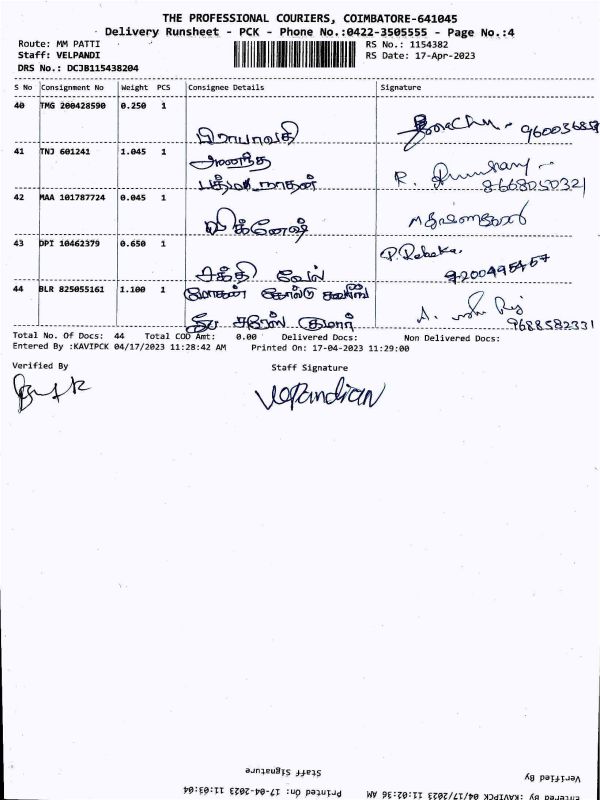 THE PROFESSIONAL COURIERS, COIMBATORE-641045
Delivery Runsheet - PCK - Phone No.:0422-3505555 - Page No.:4
Route: MM PATTI RS No.: 1154382
Staff: VELPANDI RS Date: 17-Apr-2023
DRS No.: DCJB115438204
S No Consignment No Weight PCS Consignee Details Signature
40 TMG 200428590 0.250 1
பிரபாவதி
41 TNJ 601241 1.045 1 அனந்த
பத்மநாதன் R. 8668050321
42 MAA 101787724 0.045 1
விக்னேஷ்
43 DPI 10462379 0.650 1 P. Rebeka.
சக்தி வேல் 9200495457
44 BLR 825055161 1.100 1 மோகன்
சுரேஸ் குமார் 9688582331
Total No. Of Docs: 44 Total COD Amt: 0.00 Delivered Docs: Non Delivered Docs:
Entered By :KAVIPCK 04/17/2023 11:28:42 AM Printed On: 17-04-2023 11:29:00
Verified By Staff Signature
Velpandian
Verified By Staff Signature
Entered By :KAVIPCK 04/17/2023 11:02:36 AM Printed On: 17-04-2023 11:03:04